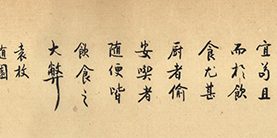 宜苟且
而於飲
食尤甚
厨者偷
安喫者
随便皆
飲食之
大弊
袁枚
随園